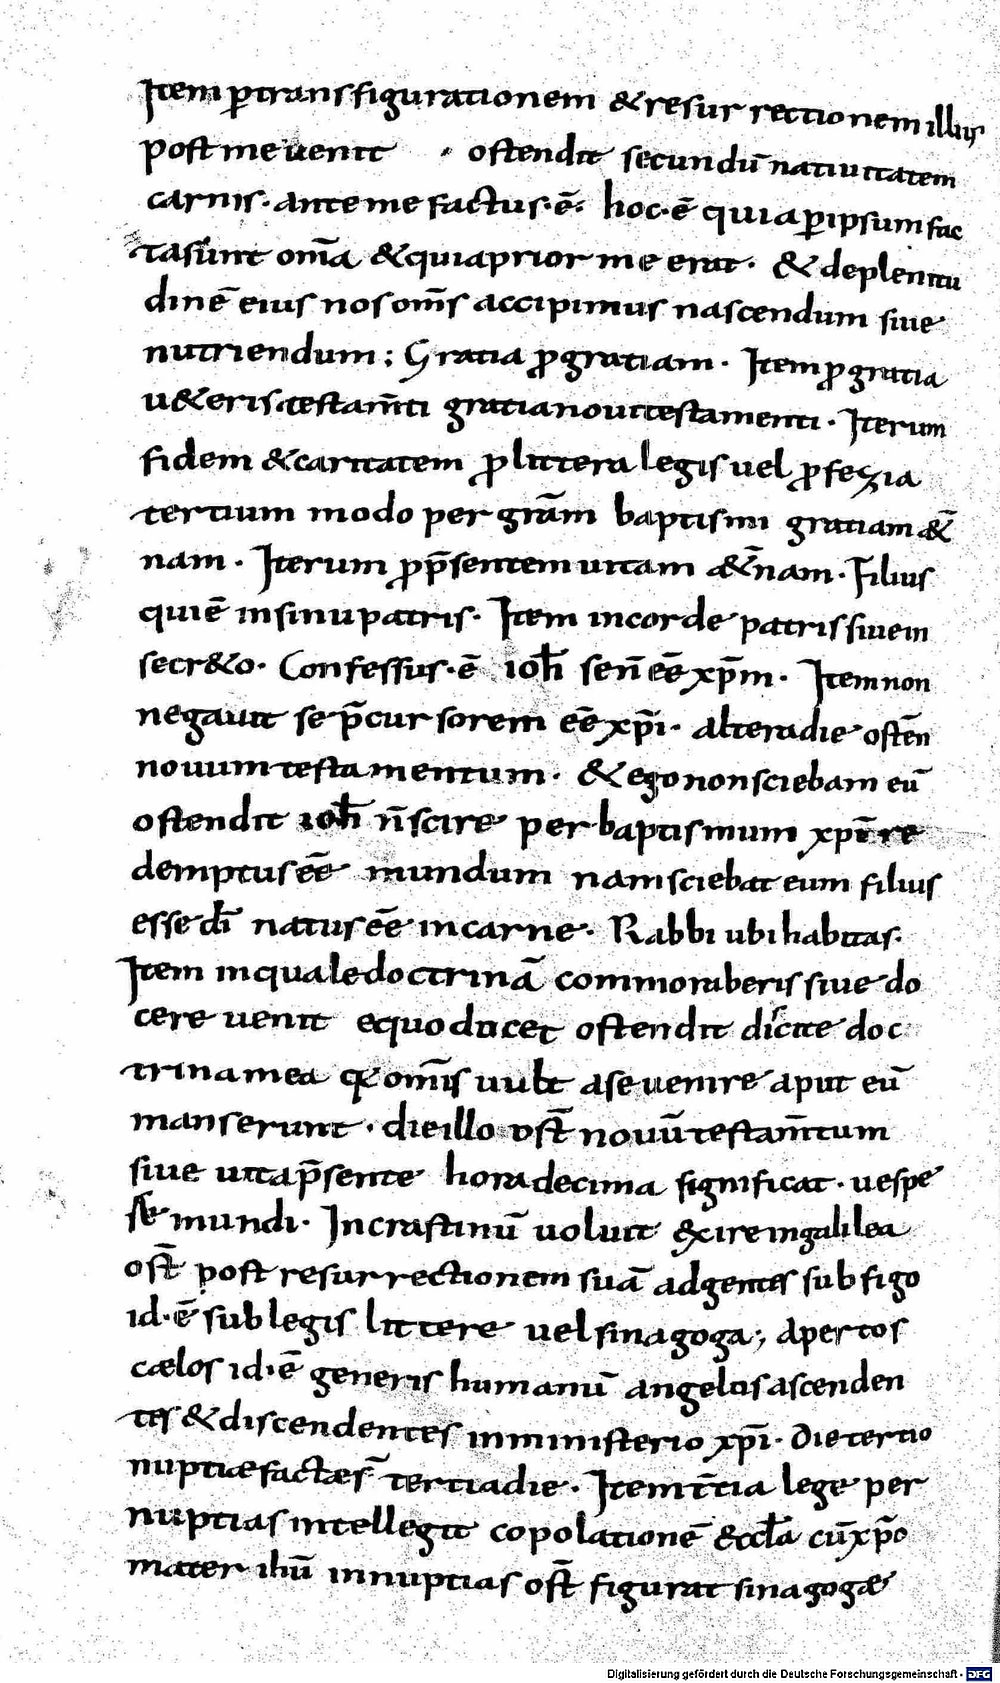 Item ꝓtransfigurationem & resurrectionem illius
post me uenit · ostendit secundū natiuitatem
carnis · ante me factus · ē · hoc · ē quia ꝑ ipsum fac
ta sunt om̄a & quia prior me erat · & de plenitu
dinē eius nos om̄s accipimus nascendum siue
nutriendum ; Gratia ꝓ gratiam · Item ꝓ gratia
u&eris testam̄ti gratia noui testamenti · Iterum
fidem & caritatem ꝓ littera legis uel ꝓfezia
tertium modo per grām baptismi gratiam &̄
nam · Iterum ꝓ p̄sentem uitam &̄nam · Filius
qui ē in sinu patris · Item in corde patris siue in
secr&o · Confessus · ē ioh̄ se n̄ eē xp̄m · Item non
negauit se p̄cursorem eē xp̄i · altera die ostēn
nouum testamentum · & ego non sciebam eū
ostendit ioh̄ n̄ scire per baptismum xp̄ē re
demptus eē mundum nam sciebat eum filius
esse dī natus eē in carne · Rabbi ubi habitas ·
Item in quale doctrinā commoraberis siue do
cere uenit e quo ducet ostendit dicite doc
trina mea qƐ om̄is uult a se uenire aput eū
manserunt · die illo ost̄ nouū testam̄tum
siue uita p̄sente hora decima significat · uespe
se mundi · In crastinū uoluit exire in galilea
ost̄ post resurrectionem suā ad gentes sub figo
id · ē sub legis littere uel sinagoga ; apertos
cælos id · ē generis humanū angelus ascenden
tes & discendentes in ministerio xp̄i · Die tertio
nuptiæ factæ s̄ tertia die · Item t̄tia lege per
nuptias intellegit copolationē &ccl̄a cū xp̄o
mater ihū in nuptias ost̄ figurat sinagogæ
Digitalisierung gefördert durch die Deutsche Forschungsgemeinschaft - DFG